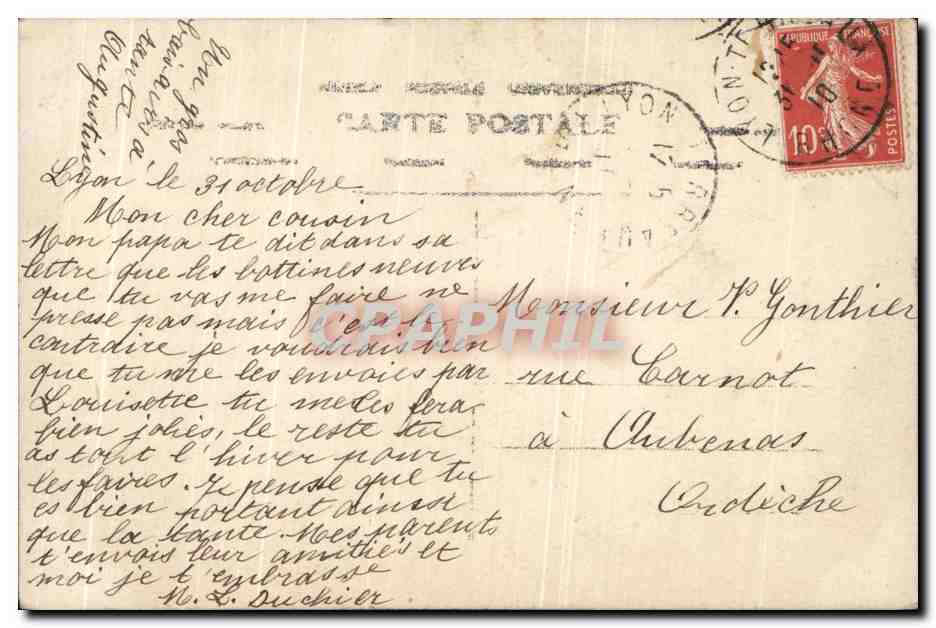 Un gros
baisa à la
tante à
Augustine
CARTE POSTALE
LYON
RÉPUBLIQUE FRANÇAISE
10 c
POSTES
Lyon le 31 octobre
Mon cher cousin
Mon papa te dit dans sa
lettre que les bottines neuves
que tu vas me faire ne
presse pas mais c'est le
contraire je voudrais bien
que tu me les envoies par
Louisette tu me les fera
bien jolies, le reste tu
as tout l'hiver pour
les faires. Je pense que tu
es bien portant ainsi
que la tante. Mes parents
t'envois leur amitiés et
moi je t'embrasse
M. L. Duchier
Monsieur P. Gonthier
rue Carnot
à Aubenas
Ardèche
CPAPHIL